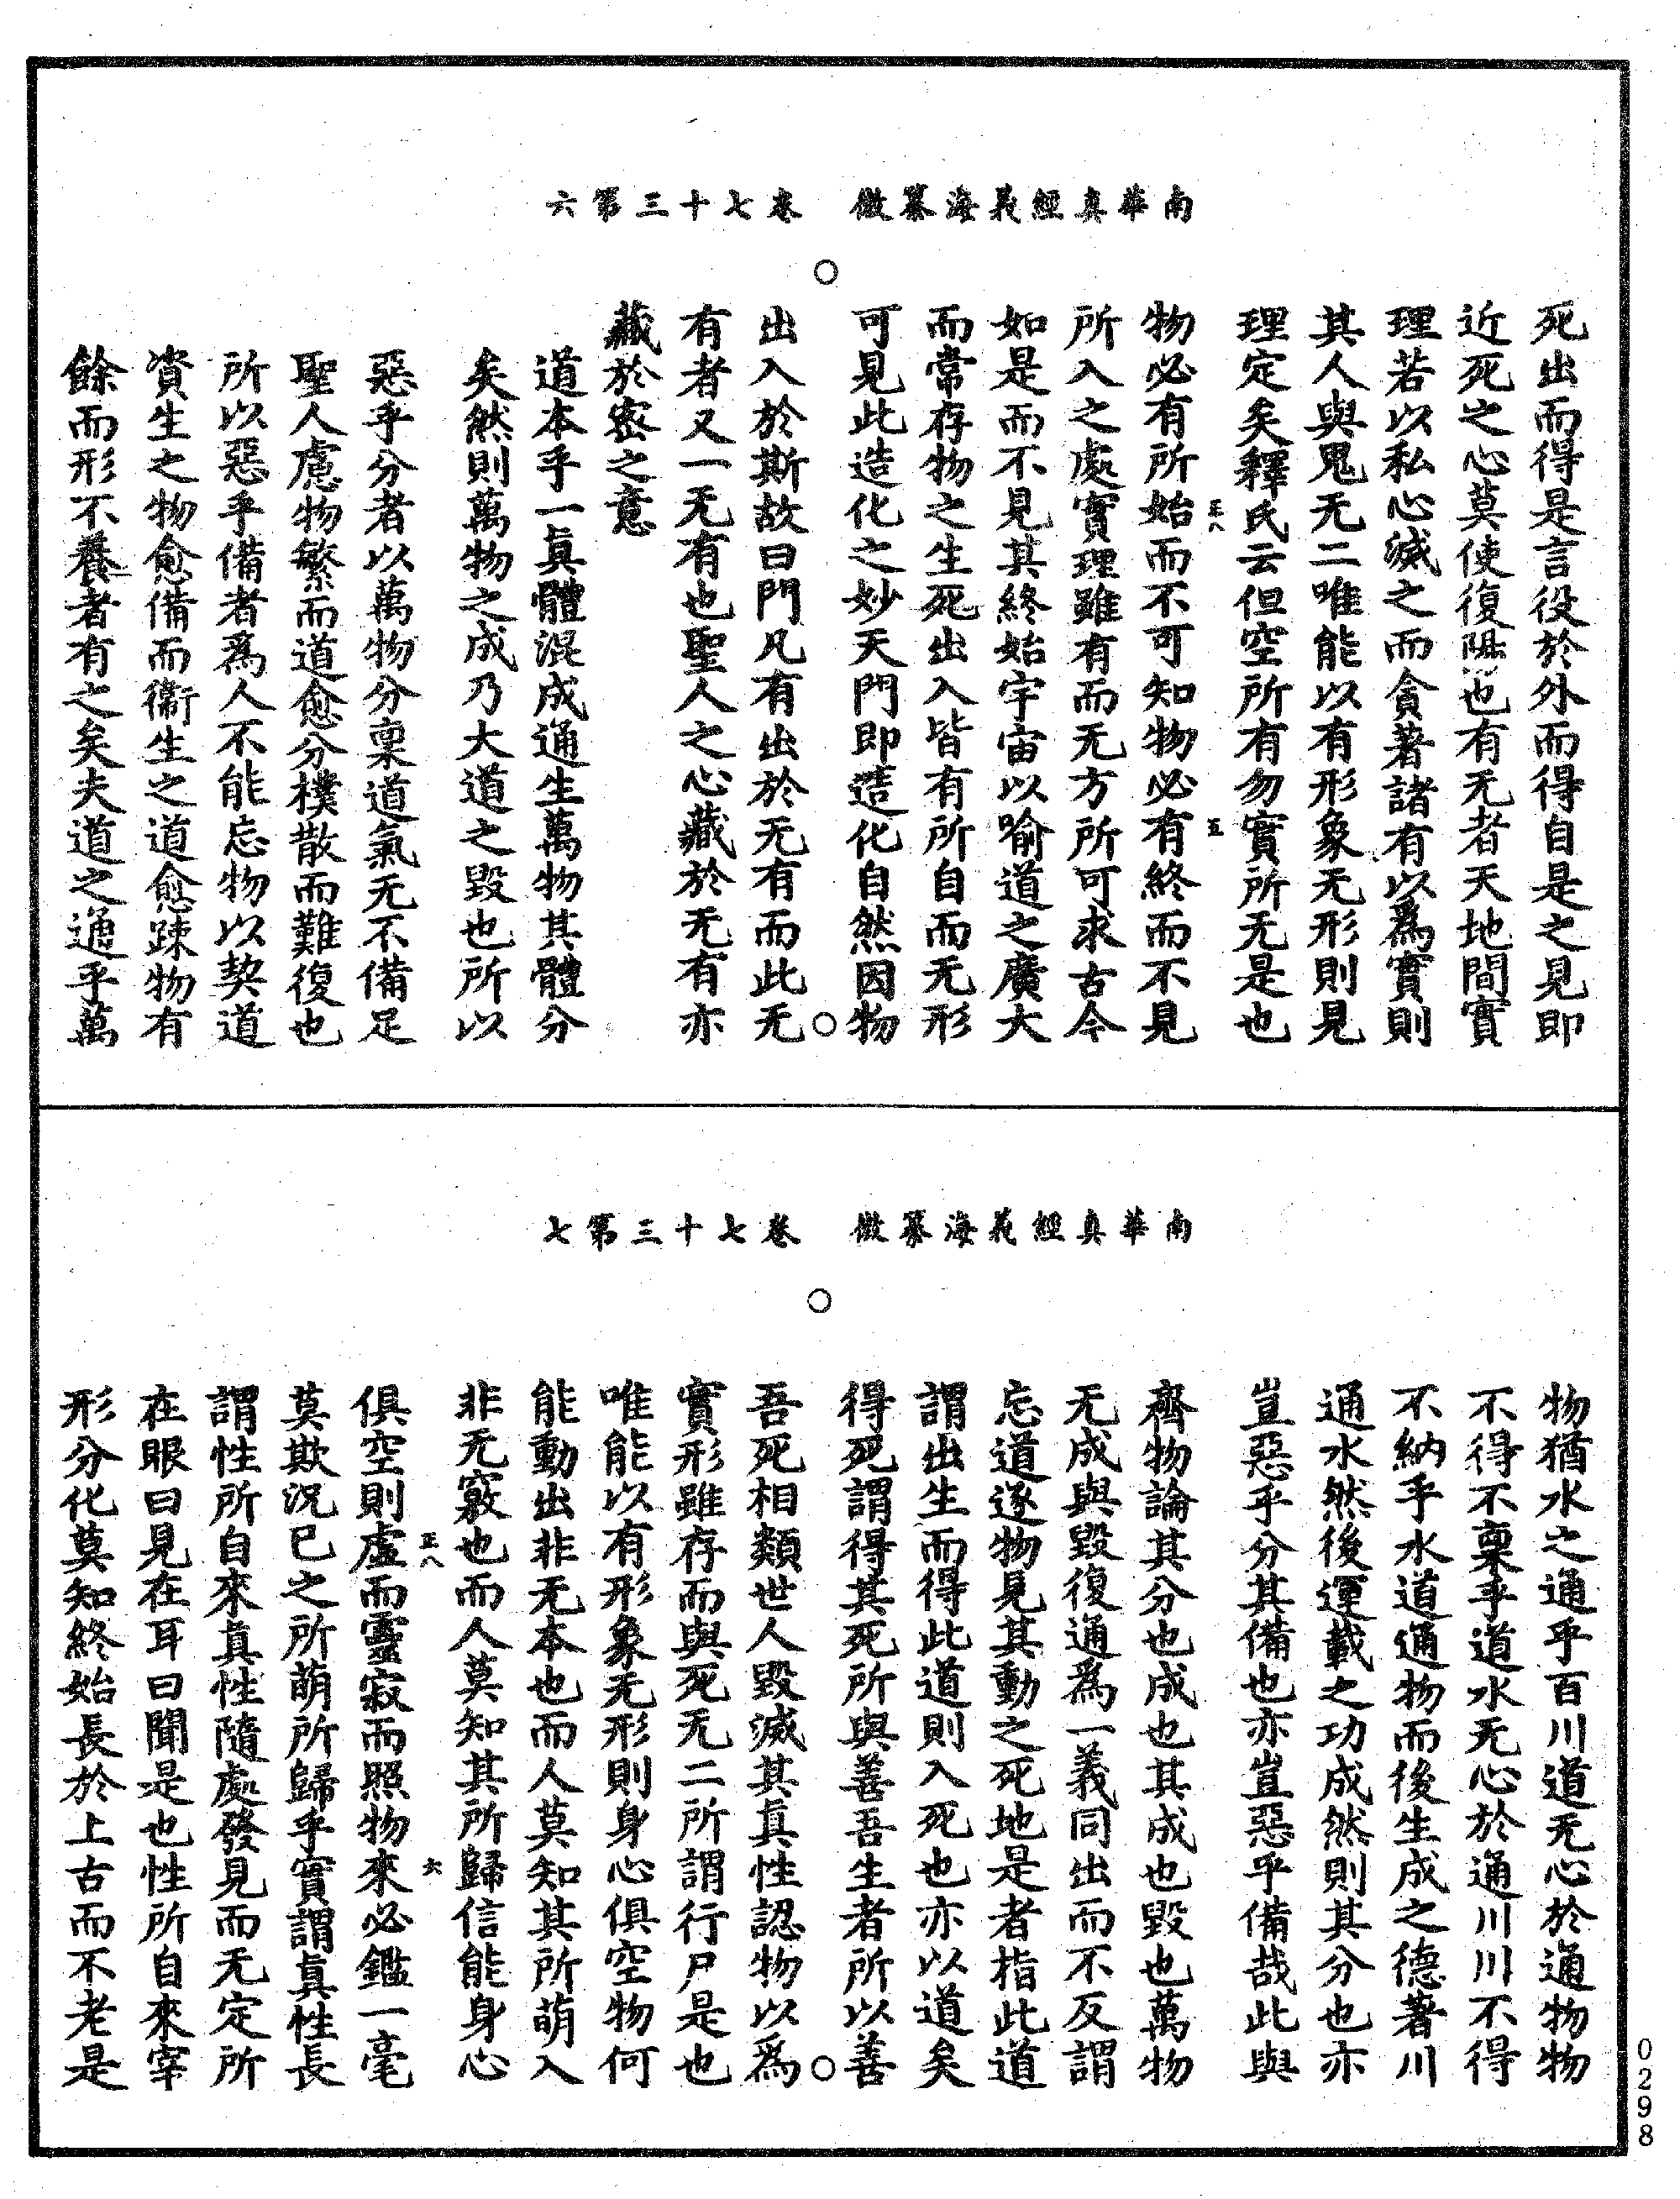 南華真經義海纂微　卷七十三第六
死出而得是言役於外而得自是之見即
近死之心莫使復陽也有无者天地間實
理若以私心滅之而貪著諸有以為實則
其人與鬼无二唯能以有形象无形則見
理定矣釋氏云但空所有勿實所无是也
正八　五
物必有所始而不可知物必有終而不見
所入之處實理雖有而无方所可求古今
如是而不見其終始宇宙以喻道之廣大
而常存物之生死出入皆有所自而无形
可見此造化之妙天門即造化自然因物
出入於斯故曰門凡有出於无有而此无
有者又一无有也聖人之心藏於无有亦
藏於密之意
道本乎一真體混成通生萬物其體分
矣然則萬物之成乃大道之毀也所以
惡乎分者以萬物分稟道氣无不備足
聖人慮物繁而道愈分樸散而難復也
所以惡乎備者為人不能忘物以契道
資生之物愈備而衞生之道愈踈物有
餘而形不養者有之矣夫道之通乎萬
南華真經義海纂微　卷七十三第七
物猶水之通乎百川道无心於通物物
不得不稟乎道水无心於通川川不得
不納乎水道通物而後生成之德著川
通水然後運載之功成然則其分也亦
豈惡乎分其備也亦豈惡乎備哉此與
齊物論其分也成也其成也毀也萬物
无成與毀復通為一義同出而不反謂
忘道逐物見其動之死地是者指此道
謂出生而得此道則入死也亦以道矣
得死謂得其死所與善吾生者所以善
吾死相類世人毀滅其真性認物以為
實形雖存而與死无二所謂行尸是也
唯能以有形象无形則身心俱空物何
能動出非无本也而人莫知其所萌入
非无竅也而人莫知其所歸信能身心
正八　六
俱空則虛而靈寂而照物來必鑑一毫
莫欺況已之所萌所歸乎實謂真性長
謂性所自來真性隨處發見而无定所
在眼曰見在耳曰聞是也性所自來宰
形分化莫知終始長於上古而不老是
0298